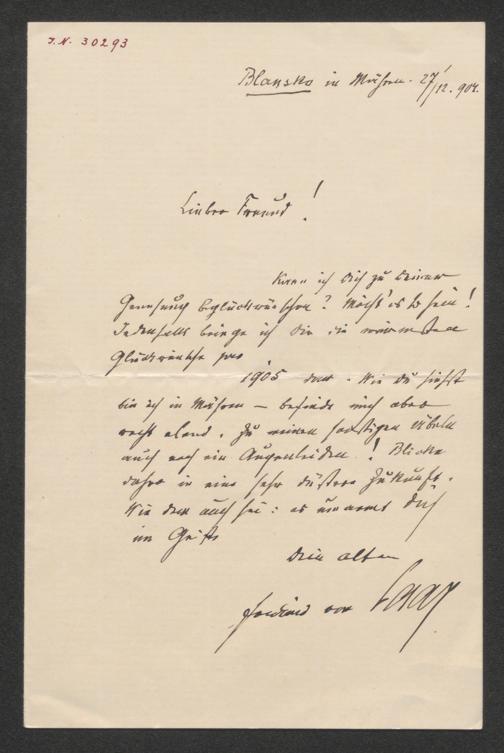 I.N. 30293
Blansko in Mähren. 27/12. 904.
Lieber Freund!
Kann ich Dich zu Deiner
Genesung beglückwünschen? Möcht' es so sein!
Jedenfalls bringe ich Dir die wärmsten
Glückwünsche pro
1905 dar. Wie Du siehst
bin ich in Mähren — befinde mich aber
recht elend. Zu meinen sonstigen Übeln
auch noch ein Augenleiden! Blicke
daher in eine sehr düstere Zukunft.
Wie dem auch sei: es umarmt Dich
im Geiste
Dein alter
Ferdinand von Saar